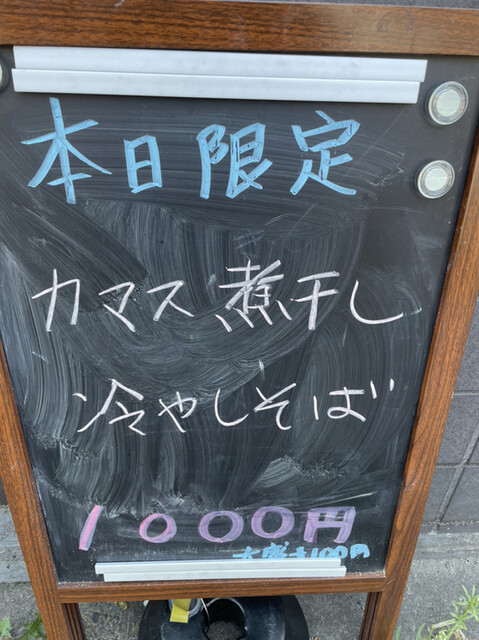 本日限定
カマス煮干し
冷やしそば
1000円
大盛+100円